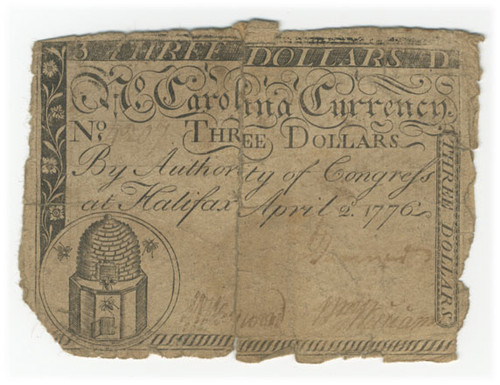 3 THREE DOLLARS D.
No. Carolina Currency.
No.
THREE DOLLARS.
By Authority of Congress
at Halifax April 2. 1776.
THREE DOLLARS